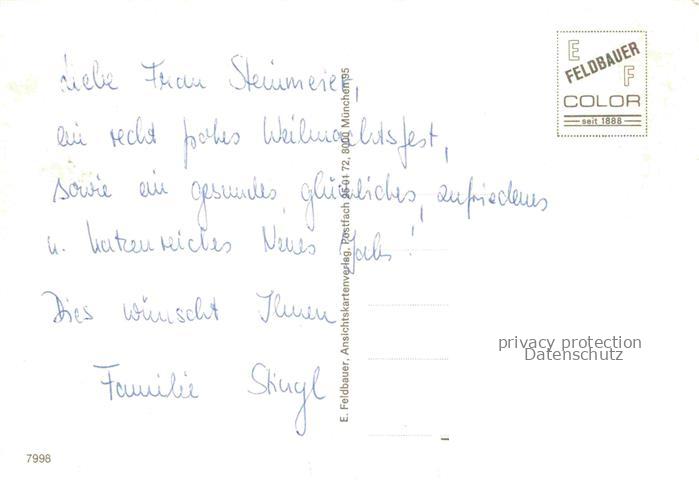 Liebe Frau Steinmeier,
ein recht frohes Weihnachtsfest,
sowie ein gesundes, glückliches, zufriedenes
u. katzenreiches Neues Jahr!
Dies wünscht Ihnen
Familie Stingl
E
FELDBAUER
F
COLOR
seit 1888
E. Feldbauer, Ansichtskartenverlag, Postfach 95 01 72, 8000 München 95
privacy protection
Datenschutz
7998